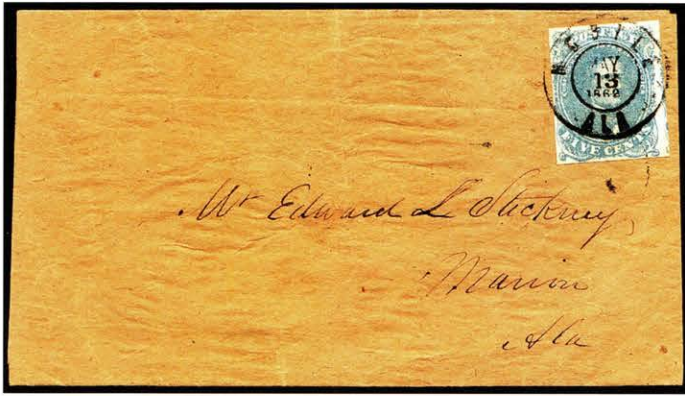 MOBILE
MAY
13
1862
ALA
FIVE CENTS
Mr Edward L Stickney,
Marion
Ala